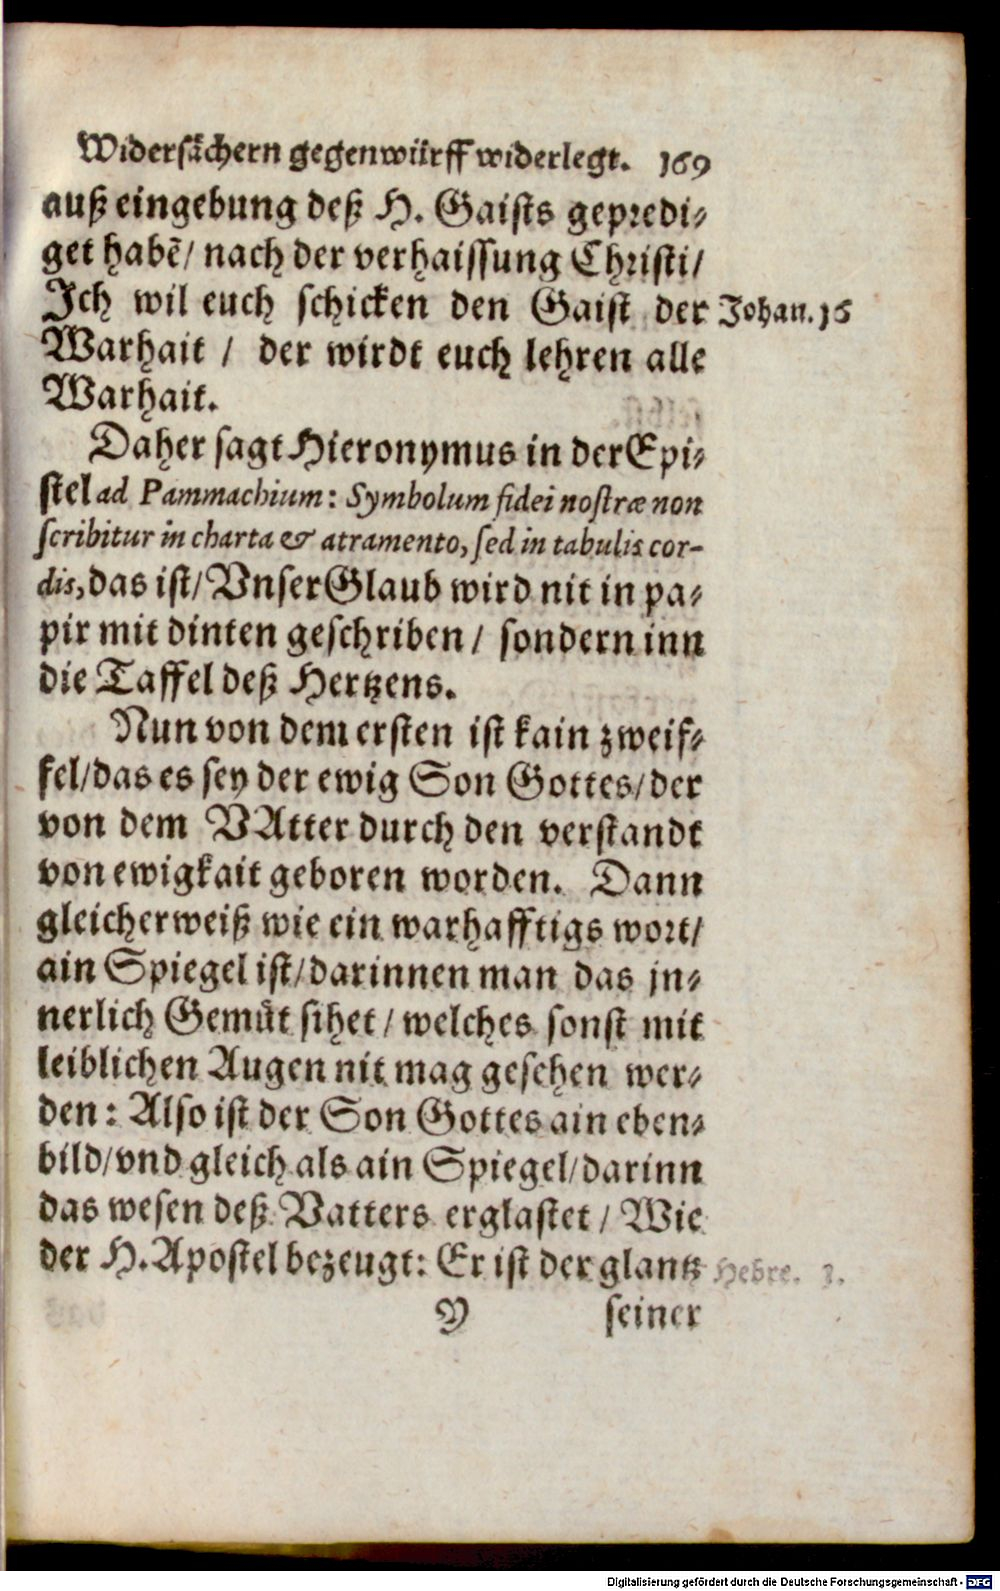 Widersächern gegenwürff widerlegt. 169
auß eingebung deß H. Gaists gepredi⸗
get habẽ/ nach der verhaissung Christi/
Ich wil euch schicken den Gaist der Johan. 16
Warhait / der wirdt euch lehren alle
Warhait.
Daher sagt Hieronymus in der Epi⸗
stel ad Pammachium: Symbolum fidei nostræ non
scribitur in charta & atramento, sed in tabulis cor-
dis, das ist/ Vnser Glaub wird nit in pa⸗
pir mit dinten geschriben / sondern inn
die Taffel deß Hertzens.
Nun von dem ersten ist kain zweif⸗
fel/ das es sey der ewig Son Gottes/ der
von dem VAtter durch den verstandt
von ewigkait geboren worden. Dann
gleicherweiß wie ein warhafftigs wort/
ain Spiegel ist/ darinnen man das jn⸗
nerlich Gemüt sihet / welches sonst mit
leiblichen Augen nit mag gesehen wer⸗
den: Also ist der Son Gottes ain eben⸗
bild/ vnd gleich als ain Spiegel/ darinn
das wesen deß Vatters erglastet / Wie
der H. Apostel bezeugt: Er ist der glantz Hebre.
Y seiner
Digitalisierung gefördert durch die Deutsche Forschungsgemeinschaft - DFG